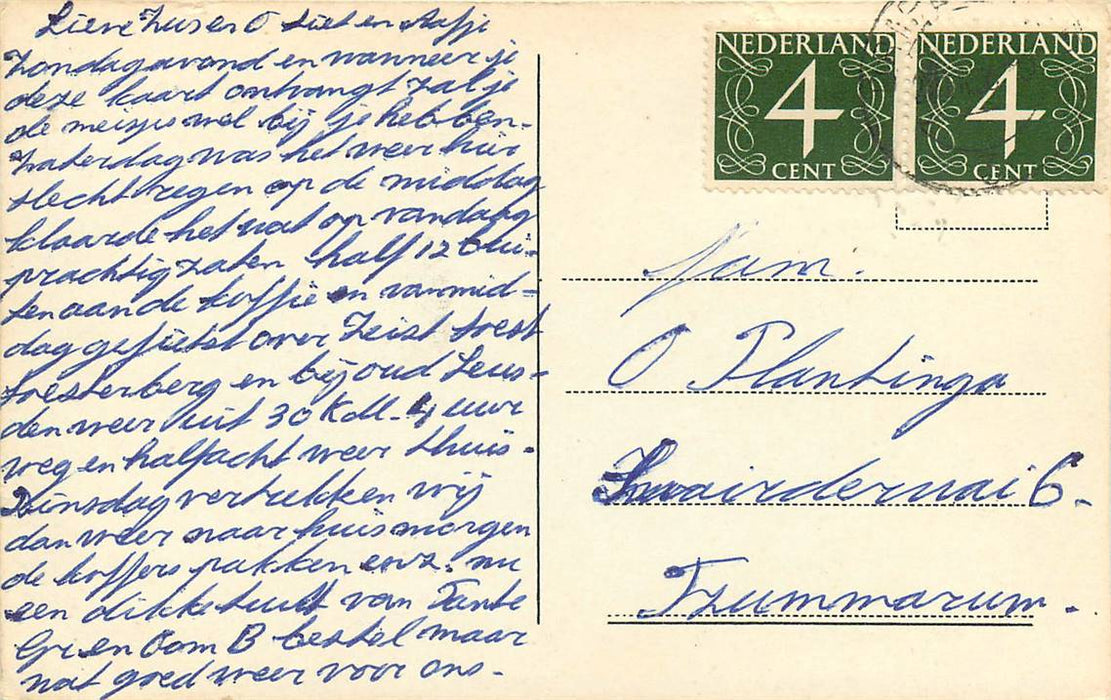 Lieve Zus en O Siet en Aafje
Zondagavond en wanneer je
deze kaart ontvangt zal je
de meisjes wel bij je hebben.
Zaterdag was het weer hier
slecht regen op de middag
klaarde het wat op vandaag
prachtig zaten half 12 bui-
ten aan de koffie en vanmid-
dag gefietst over Zeist Soest
Soesterberg en bij oud Leus-
den weer uit 30 K 4 uur
weg en half acht weer thuis.
Dinsdag vertrekken wij
dan weer naar huis morgen
de koffers pakken enz. nu
een dikke tuut van Tante
Gr en Oom B bestel maar
wat goed weer voor ons.
NEDERLAND
4
CENT
NEDERLAND
4
CENT
Fam.
O Plantinga
6.
Tzummarum.